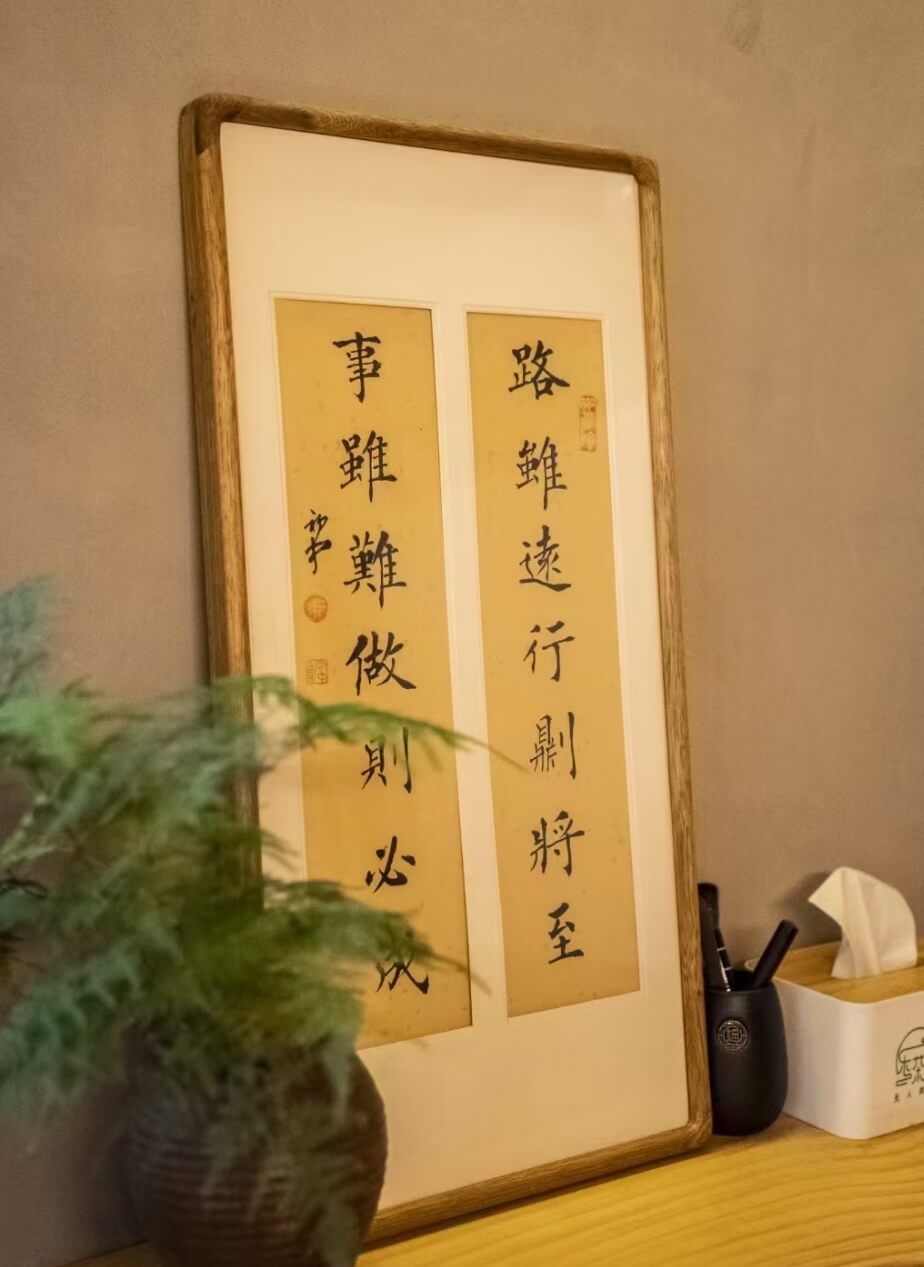 路雖遠行𠟭將至
事雖難做則必成
无人